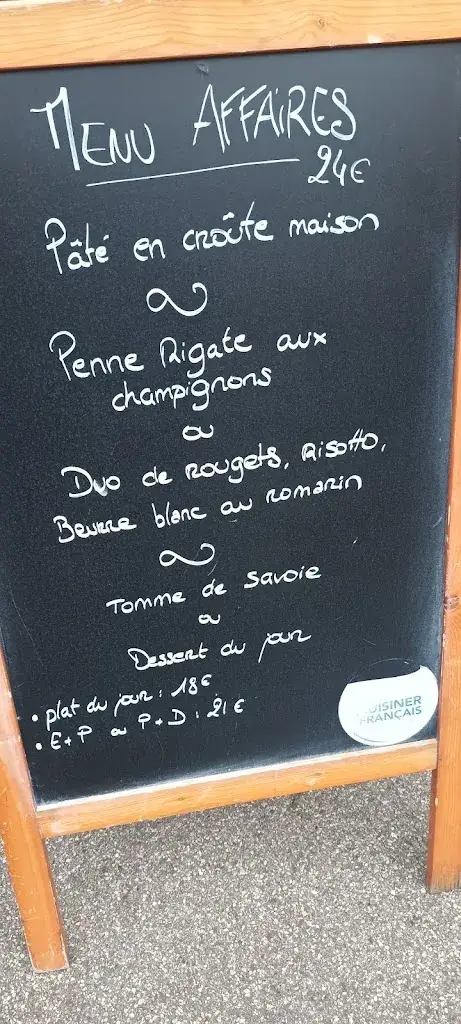 MENU AFFAIRES
24€
Pâté en croûte maison
Penne Rigate aux
champignons
ou
Duo de rougets, Risotto,
Beurre blanc au romarin
Tomme de Savoie
ou
Dessert du jour
• plat du jour : 18€
• E+P ou P+D : 21€
CUISINER
FRANÇAIS